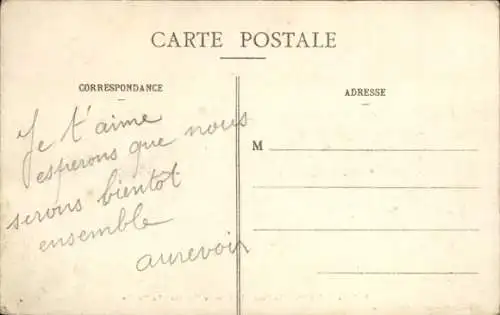 CARTE POSTALE
CORRESPONDANCE
ADRESSE
Je t'aime
esperons que nous
serons bientot
ensemble
aurevoir
M